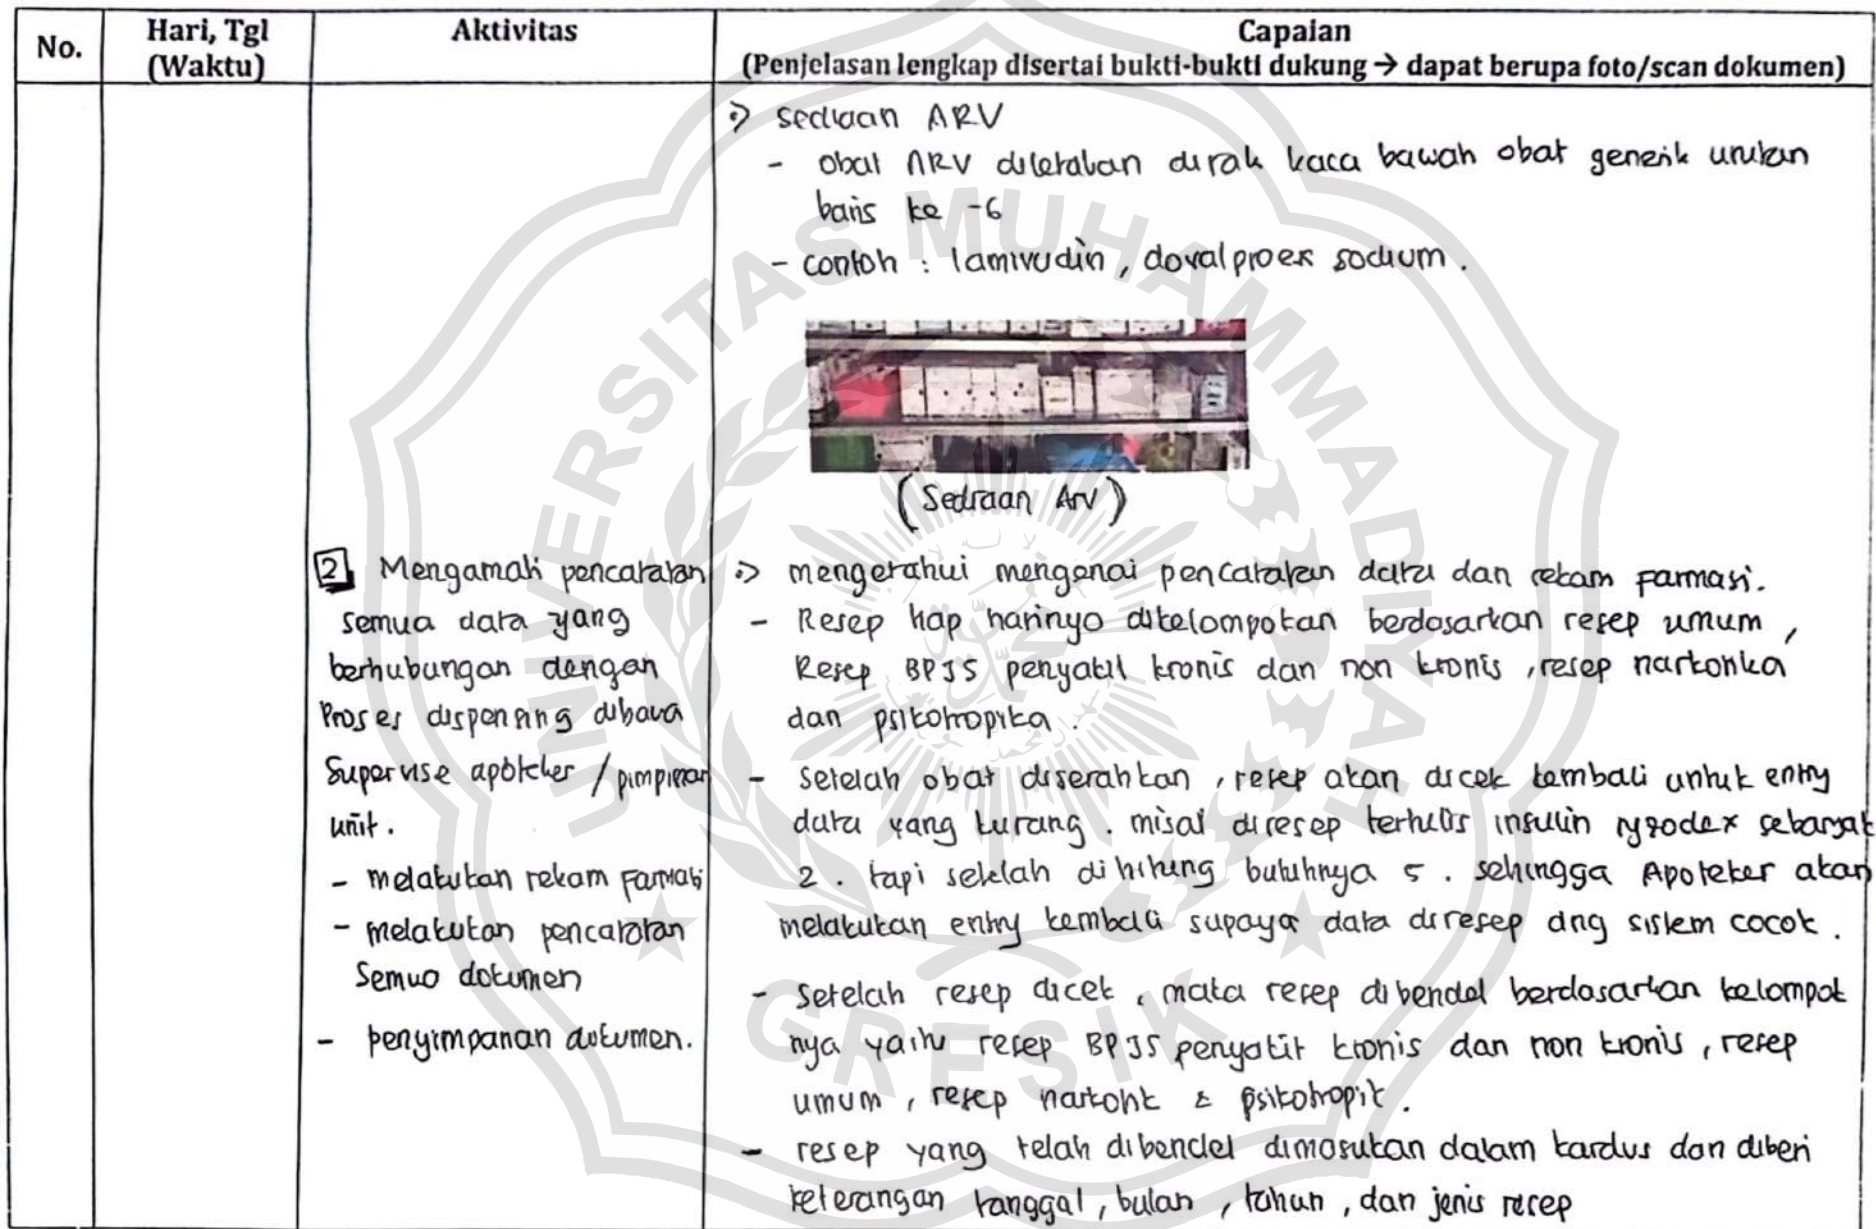 No.
Hari, Tgl
(Waktu)
Aktivitas
Capaian
(Penjelasan lengkap disertai bukti-bukti dukung → dapat berupa foto/scan dokumen)
sediaan ARV
- obat ARV diletakan dirak kaca bawah obat generik urutan
baris ke -6
- contoh : lamivudin, dovalproex sodium.
(Sediaan Arv)
2 Mengamati pencatatan
semua data yang
berhubungan dengan
Proses dispensing dibawa
Supervise apoteker / pimpinan
unit.
- melakukan rekam Farmasi
- melakukan pencatatan
Semua dokumen
- penyimpanan dokumen.
mengetahui mengenai pencatatan data dan rekam farmasi.
- Resep tiap harinya dikelompokan berdasarkan resep umum,
Resep BPJS penyakit kronis dan non kronis, resep narkotika
dan psikotropika.
- Setelah obat diserahkan, resep akan dicek kembali untuk entry
data yang kurang. misal diresep tertulis insulin ryzodex sebanyak
2. tapi setelah dihitung butuhnya 5. sehingga Apoteker akan
melakukan entry kembali supaya data diresep dng sistem cocok.
- Setelah resep dicek, maka resep dibendel berdasarkan kelompok
nya yaitu resep BPJS penyakit kronis dan non kronis, resep
umum, resep narkotik & psikotropik.
- resep yang telah dibendel dimasukan dalam kardus dan diberi
keterangan tanggal, bulan, tahun, dan jenis resep
UNIVERSITAS MUHAMMADIYAH
GRESIK